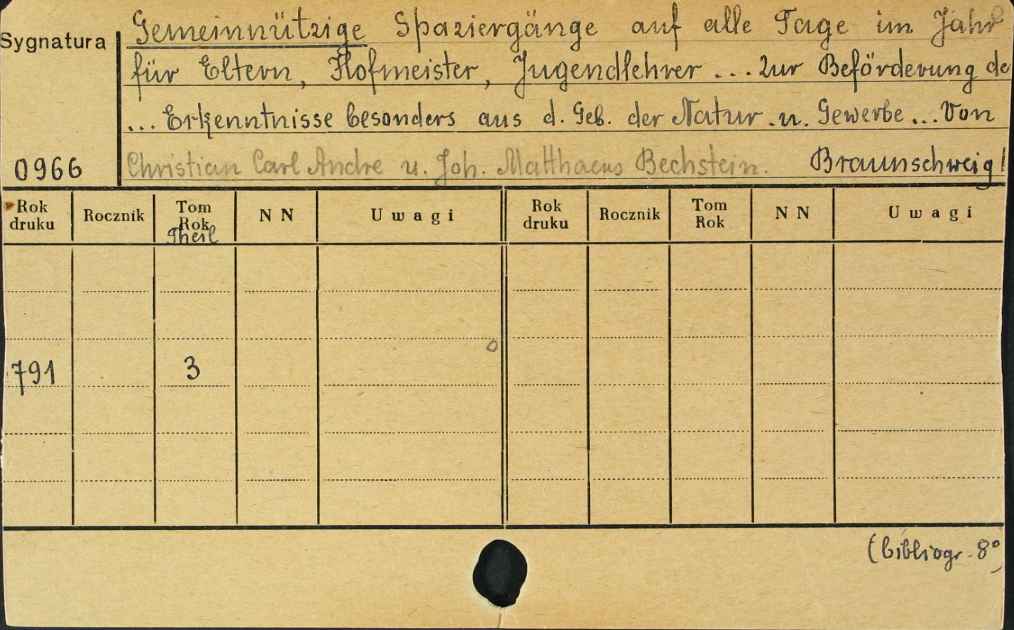 Sygnatura
0966
Gemeinnützige Spaziergänge auf alle Tage im Jahr
für Eltern, Hofmeister, Jugendlehrer ... zur Beförderung de
... Erkenntnisse besonders aus d. Geb. der Natur . u. Gewerbe ... Von
Christian Carl Andre u. Joh. Matthaeus Bechstein. Braunschweig!
Rok druku Rocznik Tom Rok Theil N N Uwagi Rok druku Rocznik Tom Rok N N Uwagi
791 3
(bibliogr. 8°)